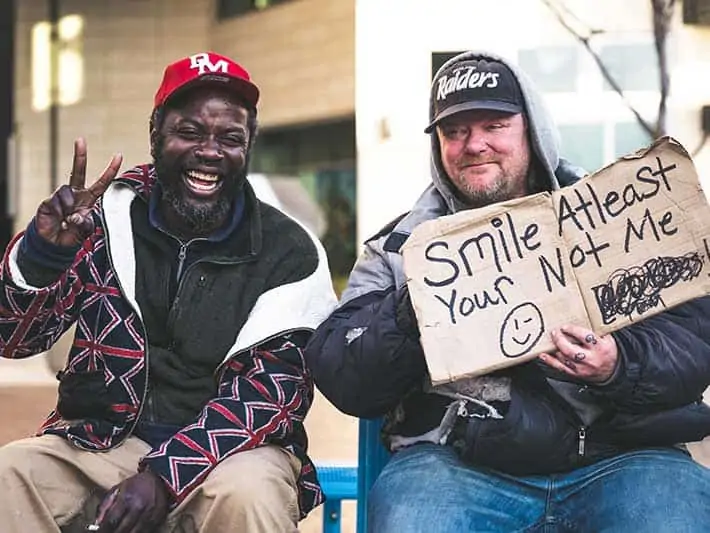 DM
Raiders
Smile Atleast
Your Not Me